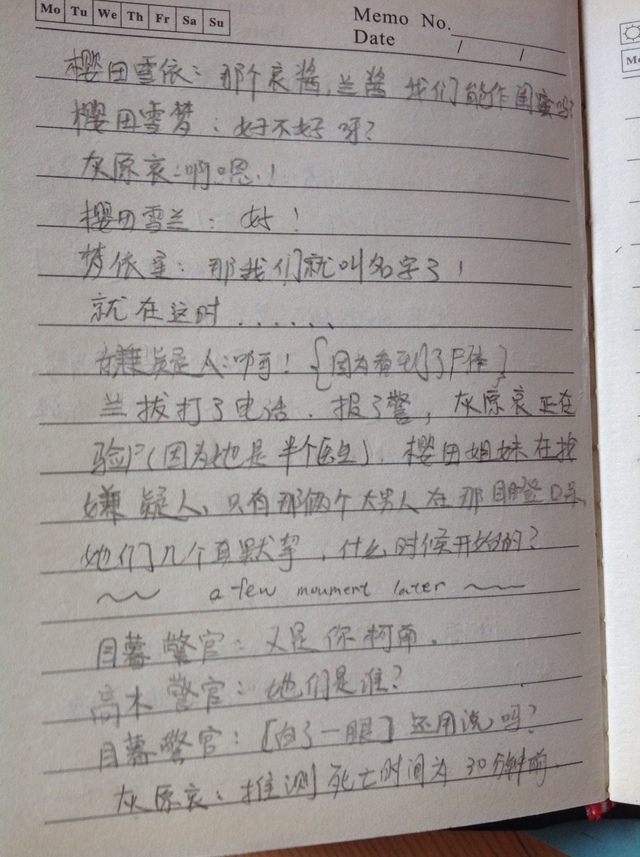 Mo Tu We Th Fr Sa Su
Memo No.
Date / /
樱田雪依：那个哀酱，兰酱 我们能作闺蜜吗？
樱田雪梦：好不好呀？
灰原哀：啊嗯！
樱田雪兰：好！
梦依兰：那我们就叫名字了！
就在这时......
嫌疑人：啊！{因为看到了尸体}
兰拔打了电话．报了警，灰原哀正在
验尸(因为她是半个医生)．樱田姐妹在找
嫌疑人，只有那俩个大男人在那目瞪口呆，
她们几个真默挈，什么时候开始的？
a few moument later
目暮警官：又是你柯南．
高木警官：她们是谁？
目暮警官：[白了一眼] 还用说吗？
灰原哀：推测死亡时间为30分钟前
Mo